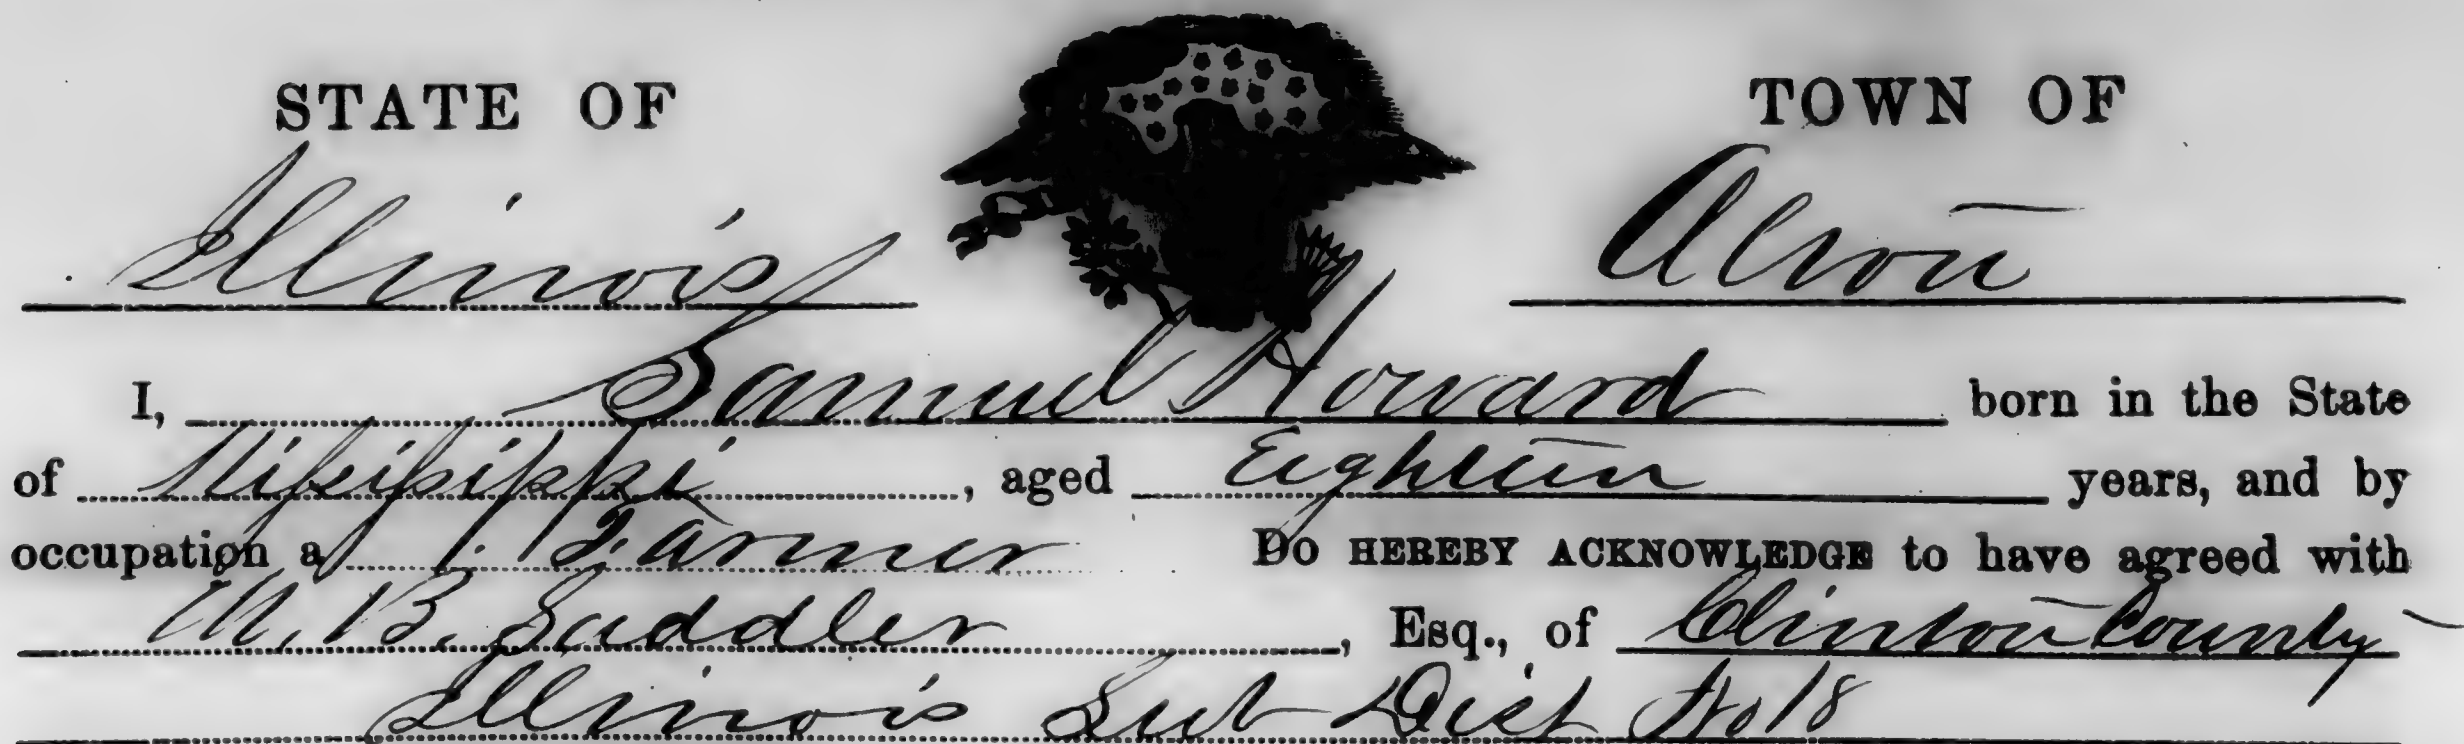 STATE OF TOWN OF
Illinois Alton
I, Samuel Howard born in the State
of Missisippi, aged Eighteen years, and by
occupation a Farmer DO HEREBY ACKNOWLEDGE to have agreed with
M. B. Saddler, Esq., of Clinton County
Illinois Sub Dist No 18